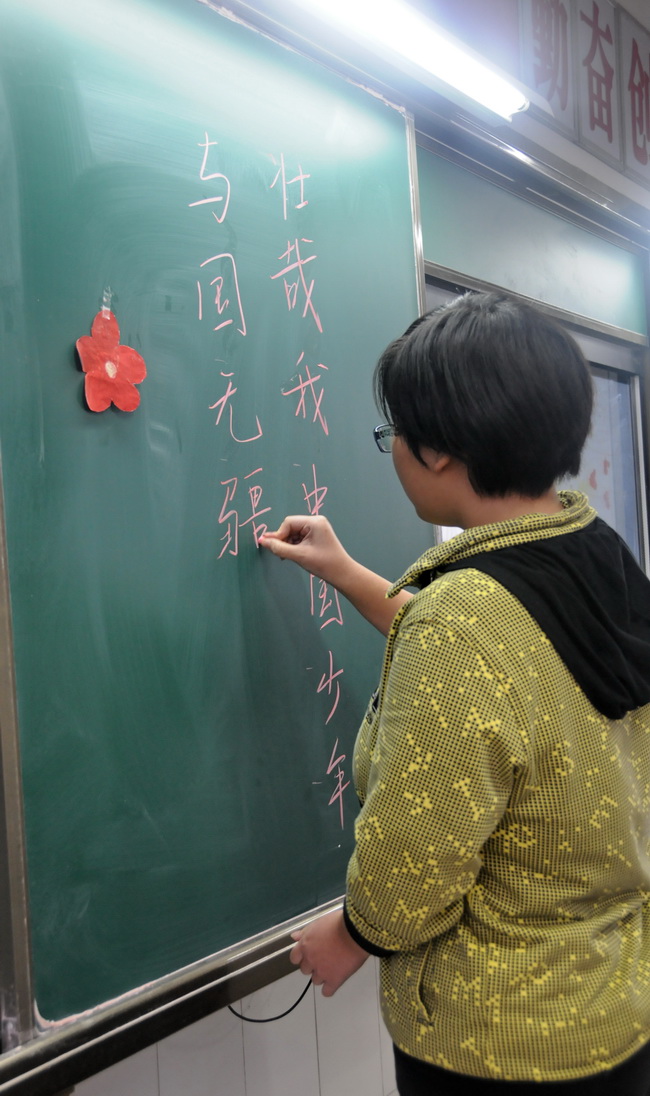 壮哉我中国少年
与国无疆
勤奋创